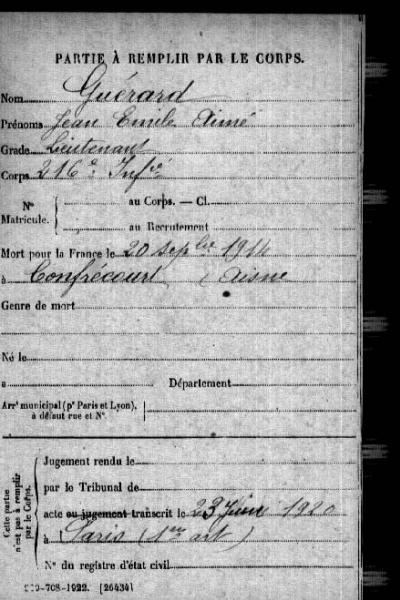 PARTIE À REMPLIR PAR LE CORPS.
Nom Guérard
Prénoms Jean Emile Aimé
Grade Lieutenant
Corps 216e Infie
N° Matricule.
au Corps. — Cl.
au Recrutement
Mort pour la France le 20 sepbre 1914
à Confrécourt (Aisne
Genre de mort
Né le
à Département
Arrt municipal (pr Paris et Lyon),
à défaut rue et N°.
Cette partie n'est pas à remplir par le Corps.
Jugement rendu le
par le Tribunal de
acte ou jugement transcrit le 23 Juin 1920
à Paris (1er art)
N° du registre d'état civil
-708-1922. [26434]